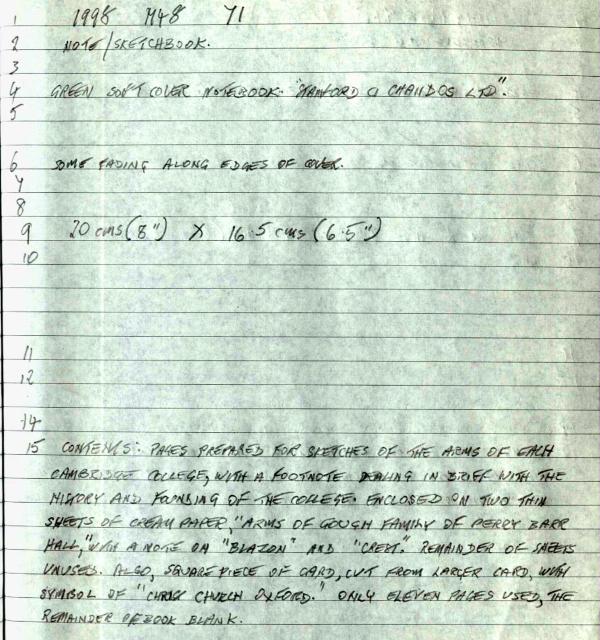 1 1998 M48 71
2 NOTE/SKETCHBOOK.
3
4 GREEN SOFT COVER NOTEBOOK. "STAMFORD & CHANDOS LTD".
5
6 SOME FADING ALONG EDGES OF COVER.
7
8
9 20 cms (8") X 16.5 cms (6.5")
10
11
12
14
15 CONTENTS: PAGES PREPARED FOR SKETCHES OF THE ARMS OF EACH
CAMBRIDGE COLLEGE, WITH A FOOTNOTE DEALING IN BRIEF WITH THE
HISTORY AND FOUNDING OF THE COLLEGE. ENCLOSED ON TWO THIN
SHEETS OF CREAM PAPER, "ARMS OF GOUGH FAMILY OF PERRY BARR
HALL," WITH A NOTE ON "BLAZON" AND "CREST." REMAINDER OF SHEETS
UNUSED. ALSO, SQUARE PIECE OF CARD, CUT FROM LARGER CARD, WITH
SYMBOL OF "CHRIST CHURCH OXFORD." ONLY ELEVEN PAGES USED, THE
REMAINDER OF BOOK BLANK.